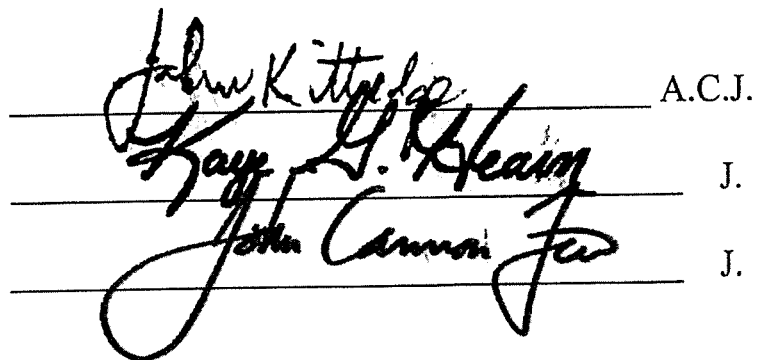 John Kittredge A.C.J.
Kaye G. Hearn J.
John Cannon Few J.